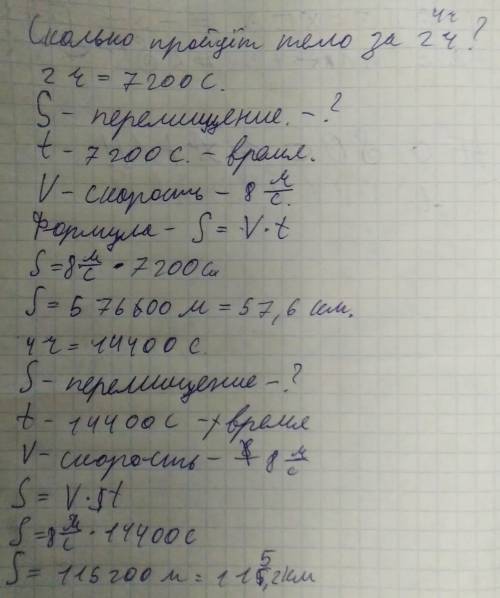 Сколько пройдёт тело за 2 ч 4ч?
2 ч = 7200 с.
S - перемищение. - ?
t - 7200 с. - время.
V - скорость - 8 м/с.
Формула - S = V · t
S = 8 м/с · 7200 с
S = 576600 м = 57,6 км.
4ч = 14400 с.
S - перемищение - ?
t - 14400 с - время
V - скорость - 8 м/с
S = V · t
S = 8 м/с · 14400 с
S = 115200 м = 115,2 км